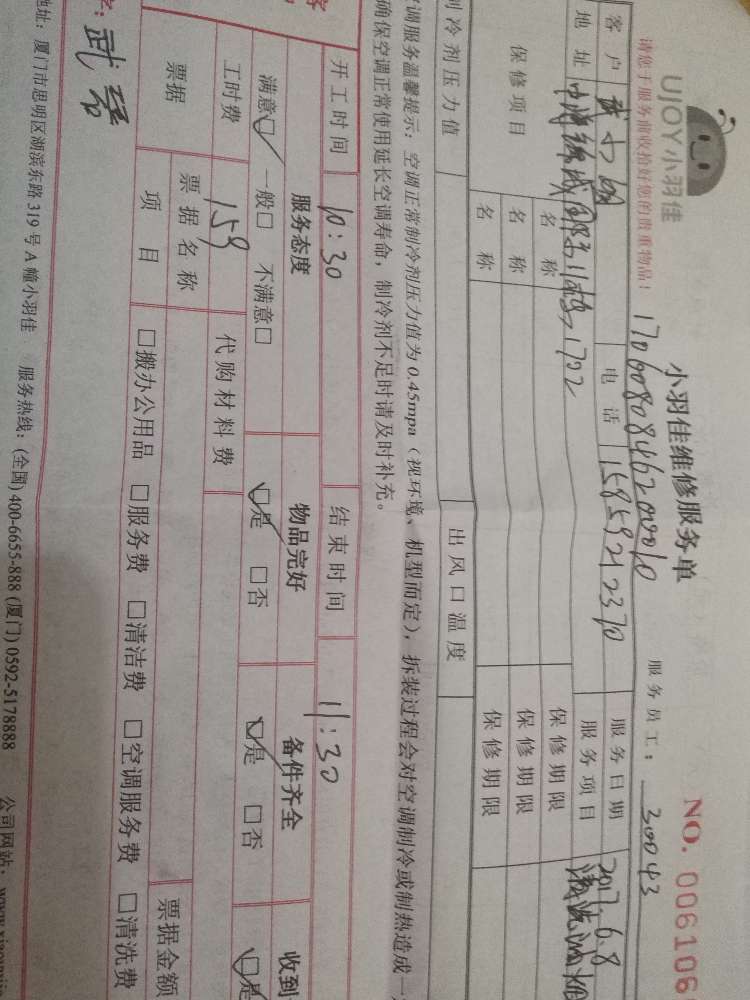 UJOY小羽佳
小羽佳维修服务单
NO. 006106
请您于服务前收拾好您的贵重物品！
1706080846200010
服务员工：30043
客户
电话 15859212370
服务日期 2017.6.8
地址
1702
服务项目
保修项目
名称
保修期限
名称
保修期限
名称
保修期限
制冷剂压力值
出风口温度
调服务温馨提示：空调正常制冷剂压力值为0.45mpa（视环境、机型而定），拆装过程会对空调制冷或制热造成一
确保空调正常使用延长空调寿命，制冷剂不足时请及时补充。
开工时间 10:30
结束时间 11:30
服务态度
物品完好
备件齐全
收到
满意☑ 一般□ 不满意□
☑是 □否
☑是 □否
☑是
工时费 159
代购材料费
票据
票据名称
票据金额
项目
□搬办公用品 □服务费 □清洁费 □空调服务费 □清洗费
地址：厦门市思明区湖滨东路319号A幢小羽佳 服务热线：(全国)400-6655-888 (厦门)0592-5178888 公司网站：